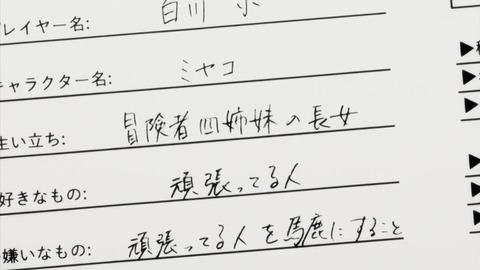 プレイヤー名: 白川 京
キャラクター名: ミヤコ
生い立ち: 冒険者四姉妹の長女
好きなもの: 頑張ってる人
嫌いなもの: 頑張ってる人を馬鹿にすること